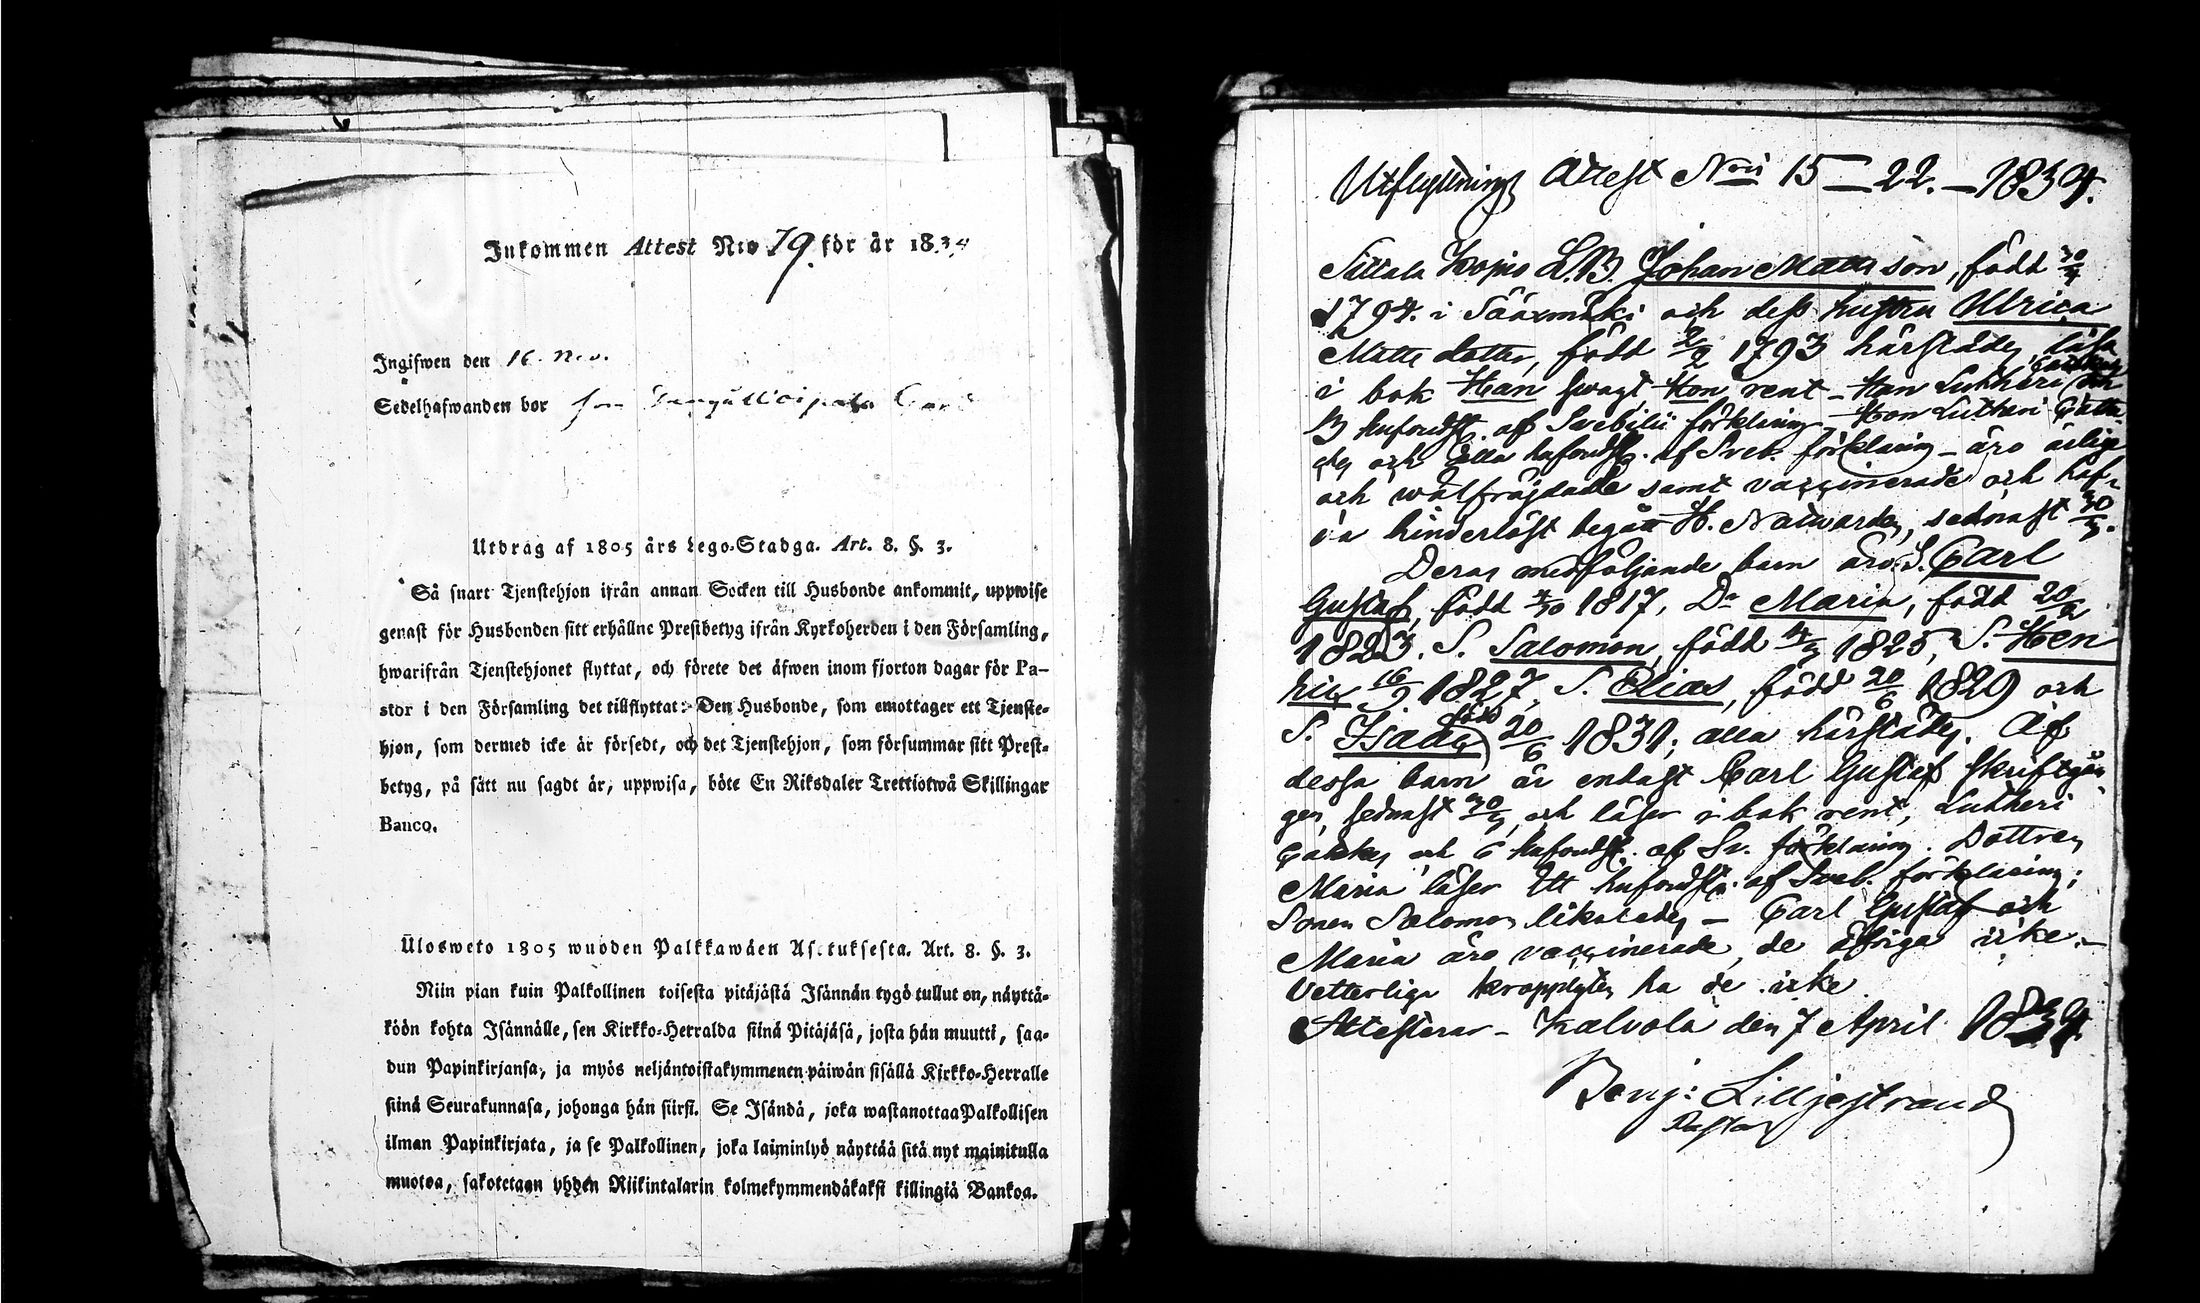 Inkommen Attest N:o 79. för år 1834
Ingifwen den 16. Nov.
Sedelhafwanden bor
Utdrag af 1805 års Lego-Stadga. Art. 8. §. 3.
Så snart Tjenstehjon ifrån annan Socken till Husbonde ankommit, uppwise
genast för Husbonden sitt erhållne Prestbetyg ifrån Kyrkoherden i den Församling,
hwarifrån Tjenstehjonet flyttat, och förete det äfwen inom fjorton dagar för Pa-
stor i den Församling det tillflyttat: Den Husbonde, som emottager ett Tjenste-
hjon, som dermed icke är försedt, och det Tjenstehjon, som försummar sitt Prest-
betyg, på sätt nu sagdt är, uppwisa, böte En Riksdaler Trettiotwå Skillingar
Banco.
Ulosweto 1805 wuoden Palkkawäen Asetuksesta. Art. 8. §. 3.
Niin pian kuin Palkollinen toisesta pitäjästä Isännän tygö tullut on, näyttä-
köön kohta Isännälle, sen Kirkko-Herralda siinä Pitäjäsä, josta hän muutti, saa-
dun Papinkirjansa, ja myös neljäntoistakymmenen päiwän sisällä Kirkko-Herralle
siinä Seurakunnasa, johonga hän siirsi. Se Isändä, joka wastanottaa Palkollisen
ilman Papinkirjata, ja se Palkollinen, joka laiminlyö näyttää sitä nyt mainitulla
muotoa, sakotetaan yhden Riikintalarin kolmekymmendäkaksi killingiä Bankoa.
Utflyttnings Attest N:ris 15 — 22. — 1834.
Sittala Kopio L.B. Johan Matts son, född 30/4
1794. i Sääxmäki och dess hustru Ulrica
Matts dotter, född 2/2 1793 härstädes, läsa
i bok Han swagt, Hon rent - Han Lutheri Cateches och
3 hufvudst. af Svebilii förklaring - Hon Lutheri Cate-
ches och alla hufvudst. af Sveb. förklaring - äro ärlige
och wälfräjdade samt vaccinerade och haf-
va hinderlöst begått H. Nattvarden, sednast 30/3.
Deras medföljande barn äro: S. Carl
Gustaf, född 4/10 1817, D:r Maria, född 20/2
1823. S. Salomon, född 14/3 1825, S. Hen
ric 16/9 1827, S. Elias, född 20/6 1829 och
S. Isaac född 20/6 1831; alla härstädes. Af
dessa barn är endast Carl Gustaf skriftgån
gen, sednast 30/3, och läser i bok rent, Lutheri
Cateches och 6 hufvudst. af Sv. förklaring. Dottren
Maria läser Ett hufvudst. af Sveb. förklaring;
Sonen Salomon likaledes - Carl Gustaf och
Maria äro vaccinerade, de öfriga icke. -
Vetterliga kroppslyten ha de icke
Attesterar - Kalvola den 7 April 1834.
Benj: Lilljestrand
Pastor